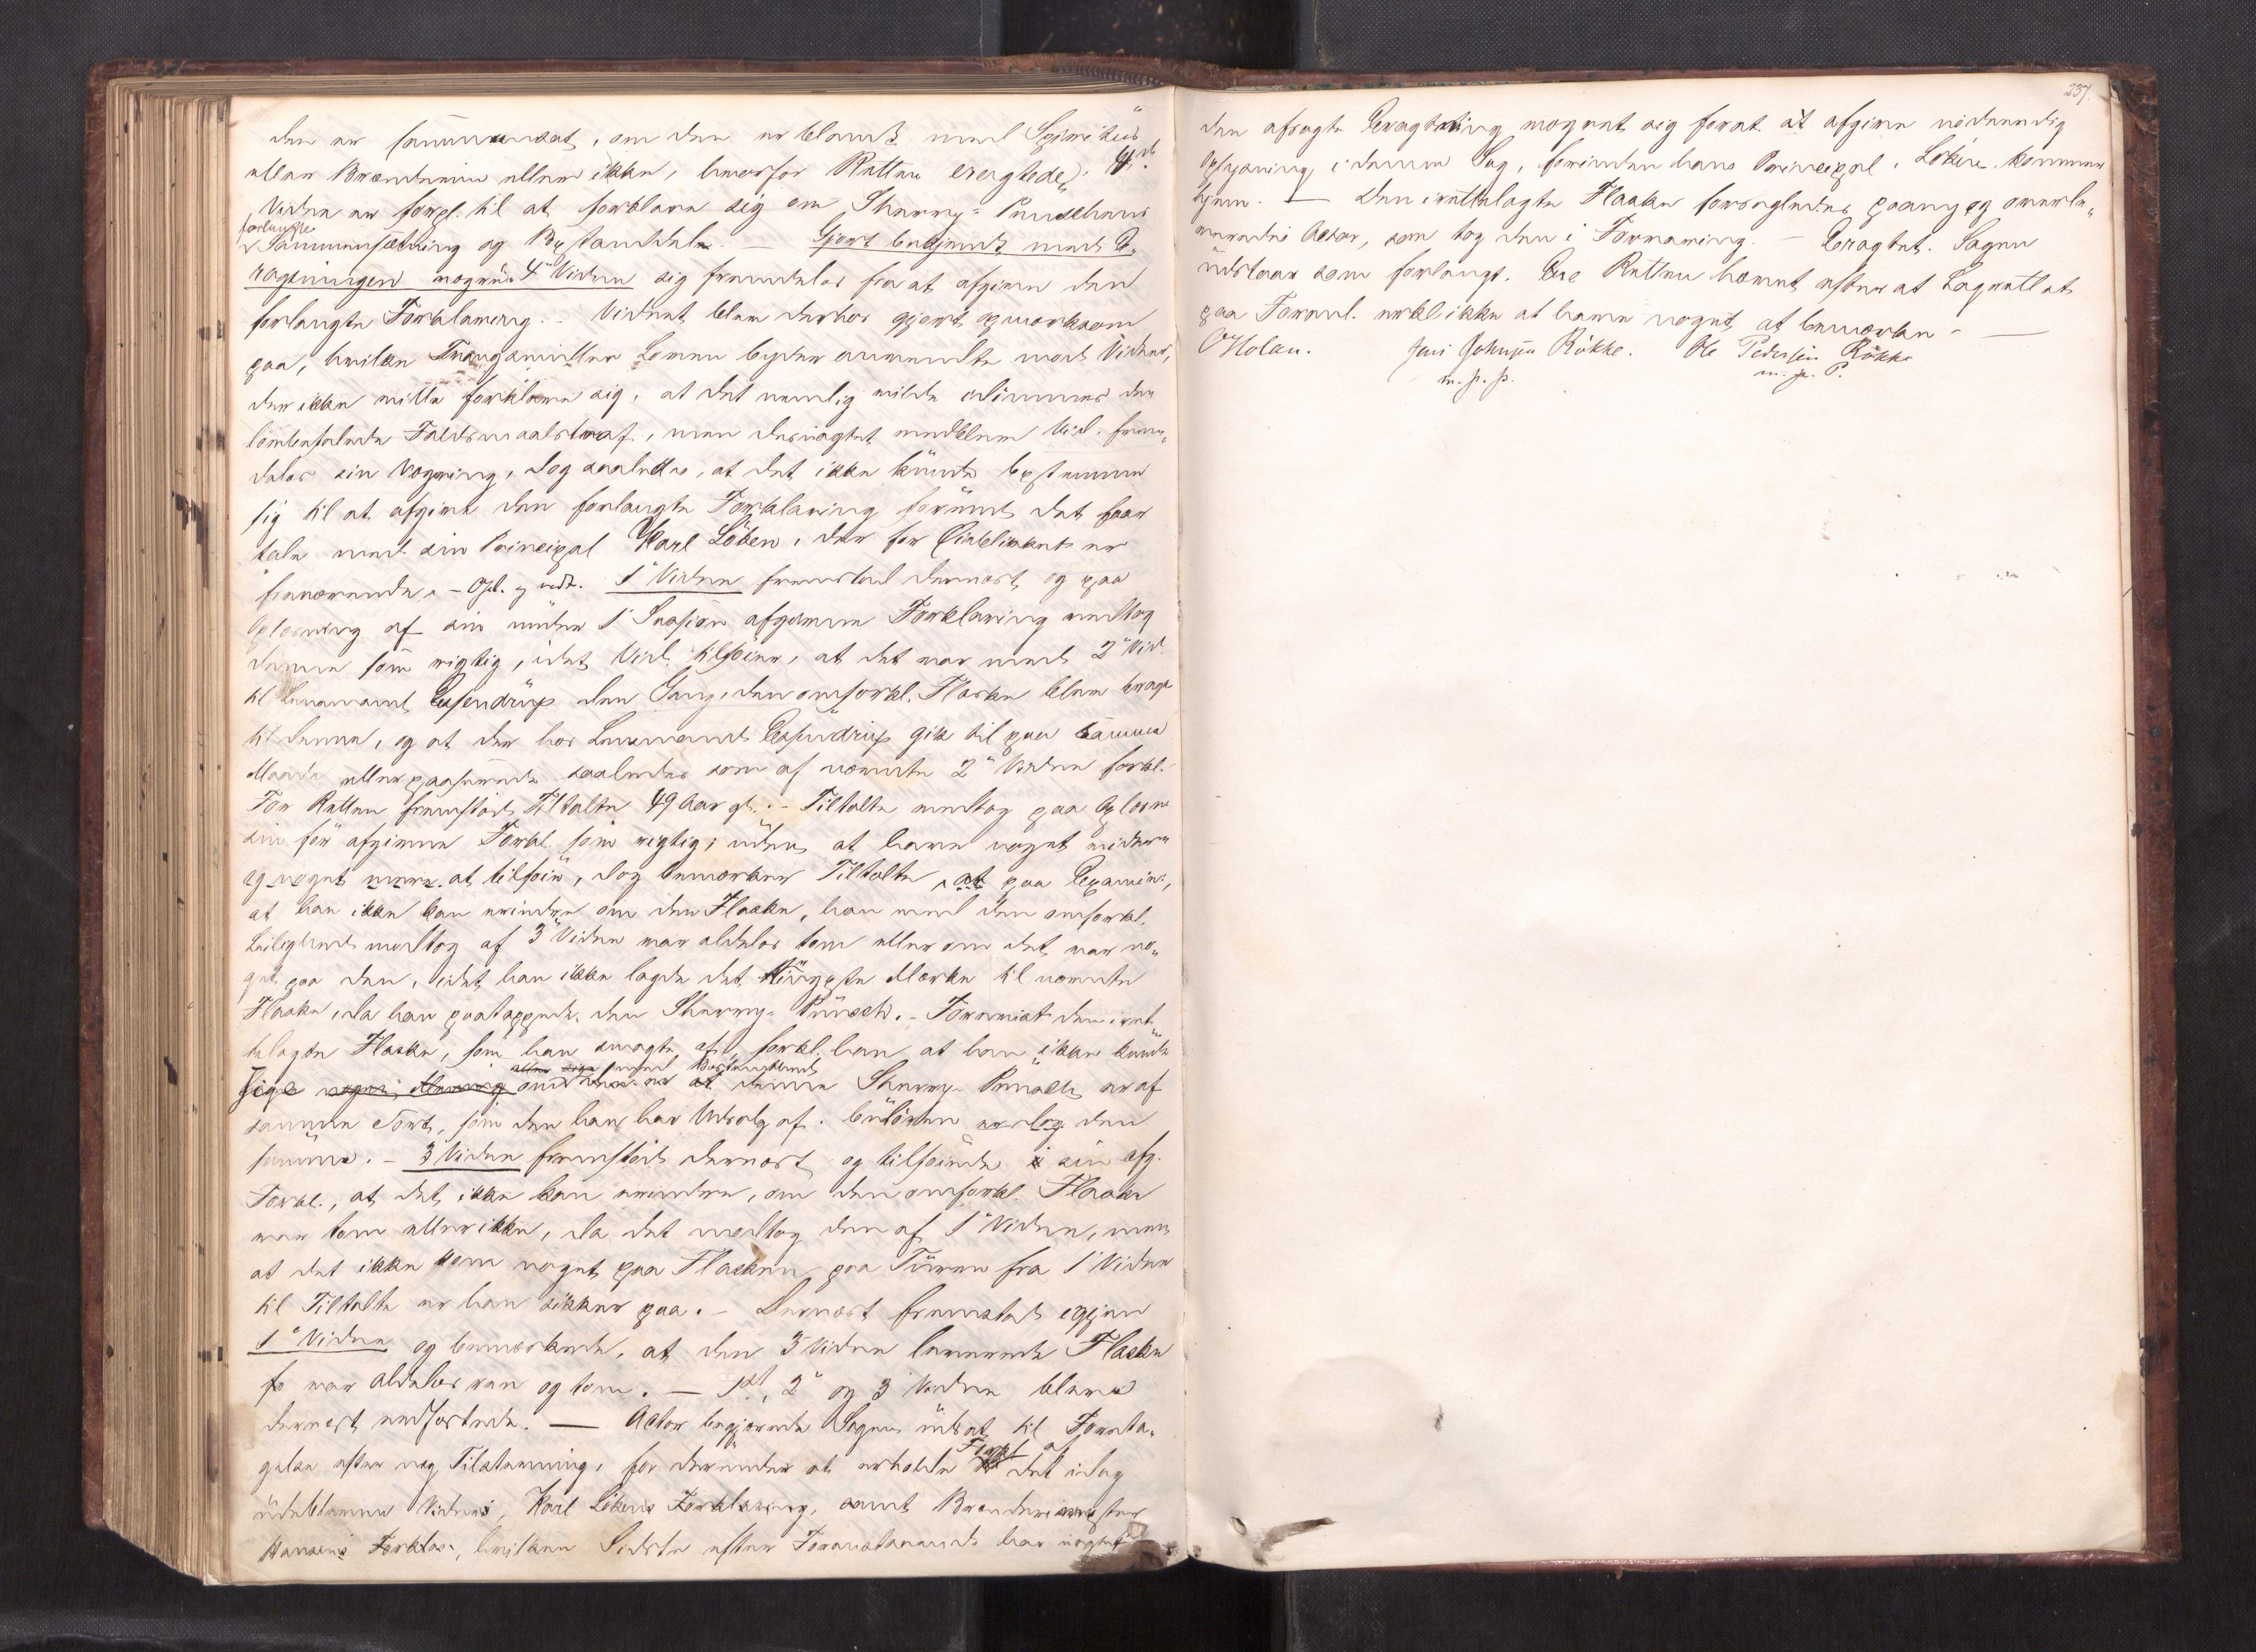 den er sammensat, om den er blandt med Spiritus
eller Brændeviin eller ikke, hvorfor Retten eragtede: 4de
Vidne er forpl. til at forklare sig om Sherry-Punschens
forlangte
Sammensætning og Bestanddele. — Gjort bekjendt med E-
ragtningen vægrede 4de Vidne sig fremdeles fra at afgive den
forlangte Forklaring. – Vidnet blev derhos gjort opmærksom
paa, hvilke Tvangsmidler Loven byder anvendte mod Vidner,
der ikke ville forklare sig, at det nemlig vilde idømmes den
lovbefalede Faldsmaalstraf, men desuagtet vedblev Vid. frem-
deles sin Vægring, dog saaledes, at det ikke kunde bestemme
sig til at afgive den forlangte Forklaring førend det faar
tale med sin Principal Karl Löken, der for Øieblikket er
fraværende. – Opl. og vedt. 1ste Vidne fremstod dernæst og paa
Oplæsning af sin under 1ste Session afgivne Forklaring vedtog
denne som rigtig, idet Vid. tilføier, at det var med 2det Vid.
til Lensmand Essendrup den Gang, den omforkl. Flaske blev bragt
til denne, og at der hos Lensmand Essendrup gik til paa samme
Maade eller paafølgende saaledes som af nævnte 2det Vidne forkl.
For Retten fremstod Tiltalte 49 Aar gl. – Tiltalte vedtog paa Oplæsn.
sin før afgivne Forkl. som rigtig, uden at have noget videre
og noget mere at tilføie, dog bemærker Tiltalte, at paa Examin.,
at han ikke kan erindre om den Flaske, han ved den omforkl.
Leilighed modtog af 3die Vidne var aldeles tom eller om det var no-
get paa den, idet han ikke lagde det ringeste Mærke til nævnte
Flaske, da han paatappede den Sherry-Punsch. – Forevist den iret-
telagte Flaske, som han smagte af, forkl. han at han ikke kunde
sige nogen Mening om denne med Bestemthed at denne Sherry-Punsch er af
samme Sort, som den han har Udsalg af. Couleuren er dog den
samme. – 3die Vidne fremstod dernæst og tilføiede i sin afg.
Forkl., at det ikke kan erindre, om den omforkl. Flaske
var tom eller ikke, da det modtog den af 1ste Vidne, men
at det ikke kom noget paa Flasken paa Turen fra 1ste Vidne
til Tiltalte er han sikker paa. – Dernæst fremstod igjen
1ste Vidne og bemærkede, at den 3die Vidne leverede Flaske
for var aldeles ren og tom. — 1ste, 2det og 3die Vidne bleve
dernæst edfæstede. — Actor begjærede Sagen udsat til Foreta-
gelse efter ny Tilstævning, for derunder at erholde Forkl. af det idag
udeblevne Vidnes, Karl Lökens Forklaring, samt Brænderimester
Hansens Forklar., hvilken Sidste efter Foranstaaende har nægtet
237.
den afsagte Eragtning vægret sig for at afgive nødvendig
Oplysning i denne Sag, forinden hans Principal, Löken, kommer
hjem. — Den irettelagte Flaske forsegledes paany og overle-
veredes Actor, som tog den i Forvaring. — Eragtet. Sagen
udstaar som forlangt. Ere Retten hævet efter at Lagrettet
paa Foresp. erkl. ikke at have noget at bemærke. —
O Holan. Jens Johnsen Røkke. Ole Pedersen Røkke
m. p. p. m. p. P.